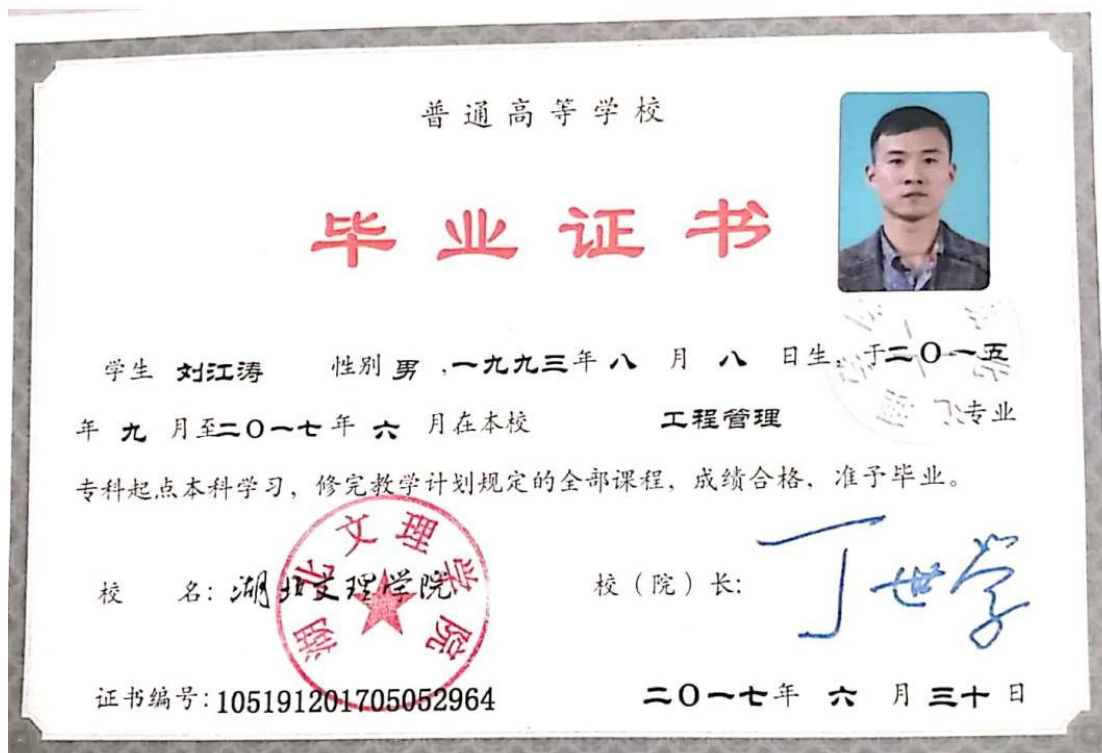 普通高等学校
毕业证书
学生 刘江涛 性别 男 ,一九九三年 八 月 八 日生, 于二〇一五
年 九 月至二〇一七年 六 月在本校 工程管理 专业
专科起点本科学习, 修完教学计划规定的全部课程, 成绩合格, 准予毕业。
校 名: 湖北文理学院
湖北文理学院
校（院）长: 丁世学
证书编号: 105191201705052964
二〇一七年 六 月 三十 日